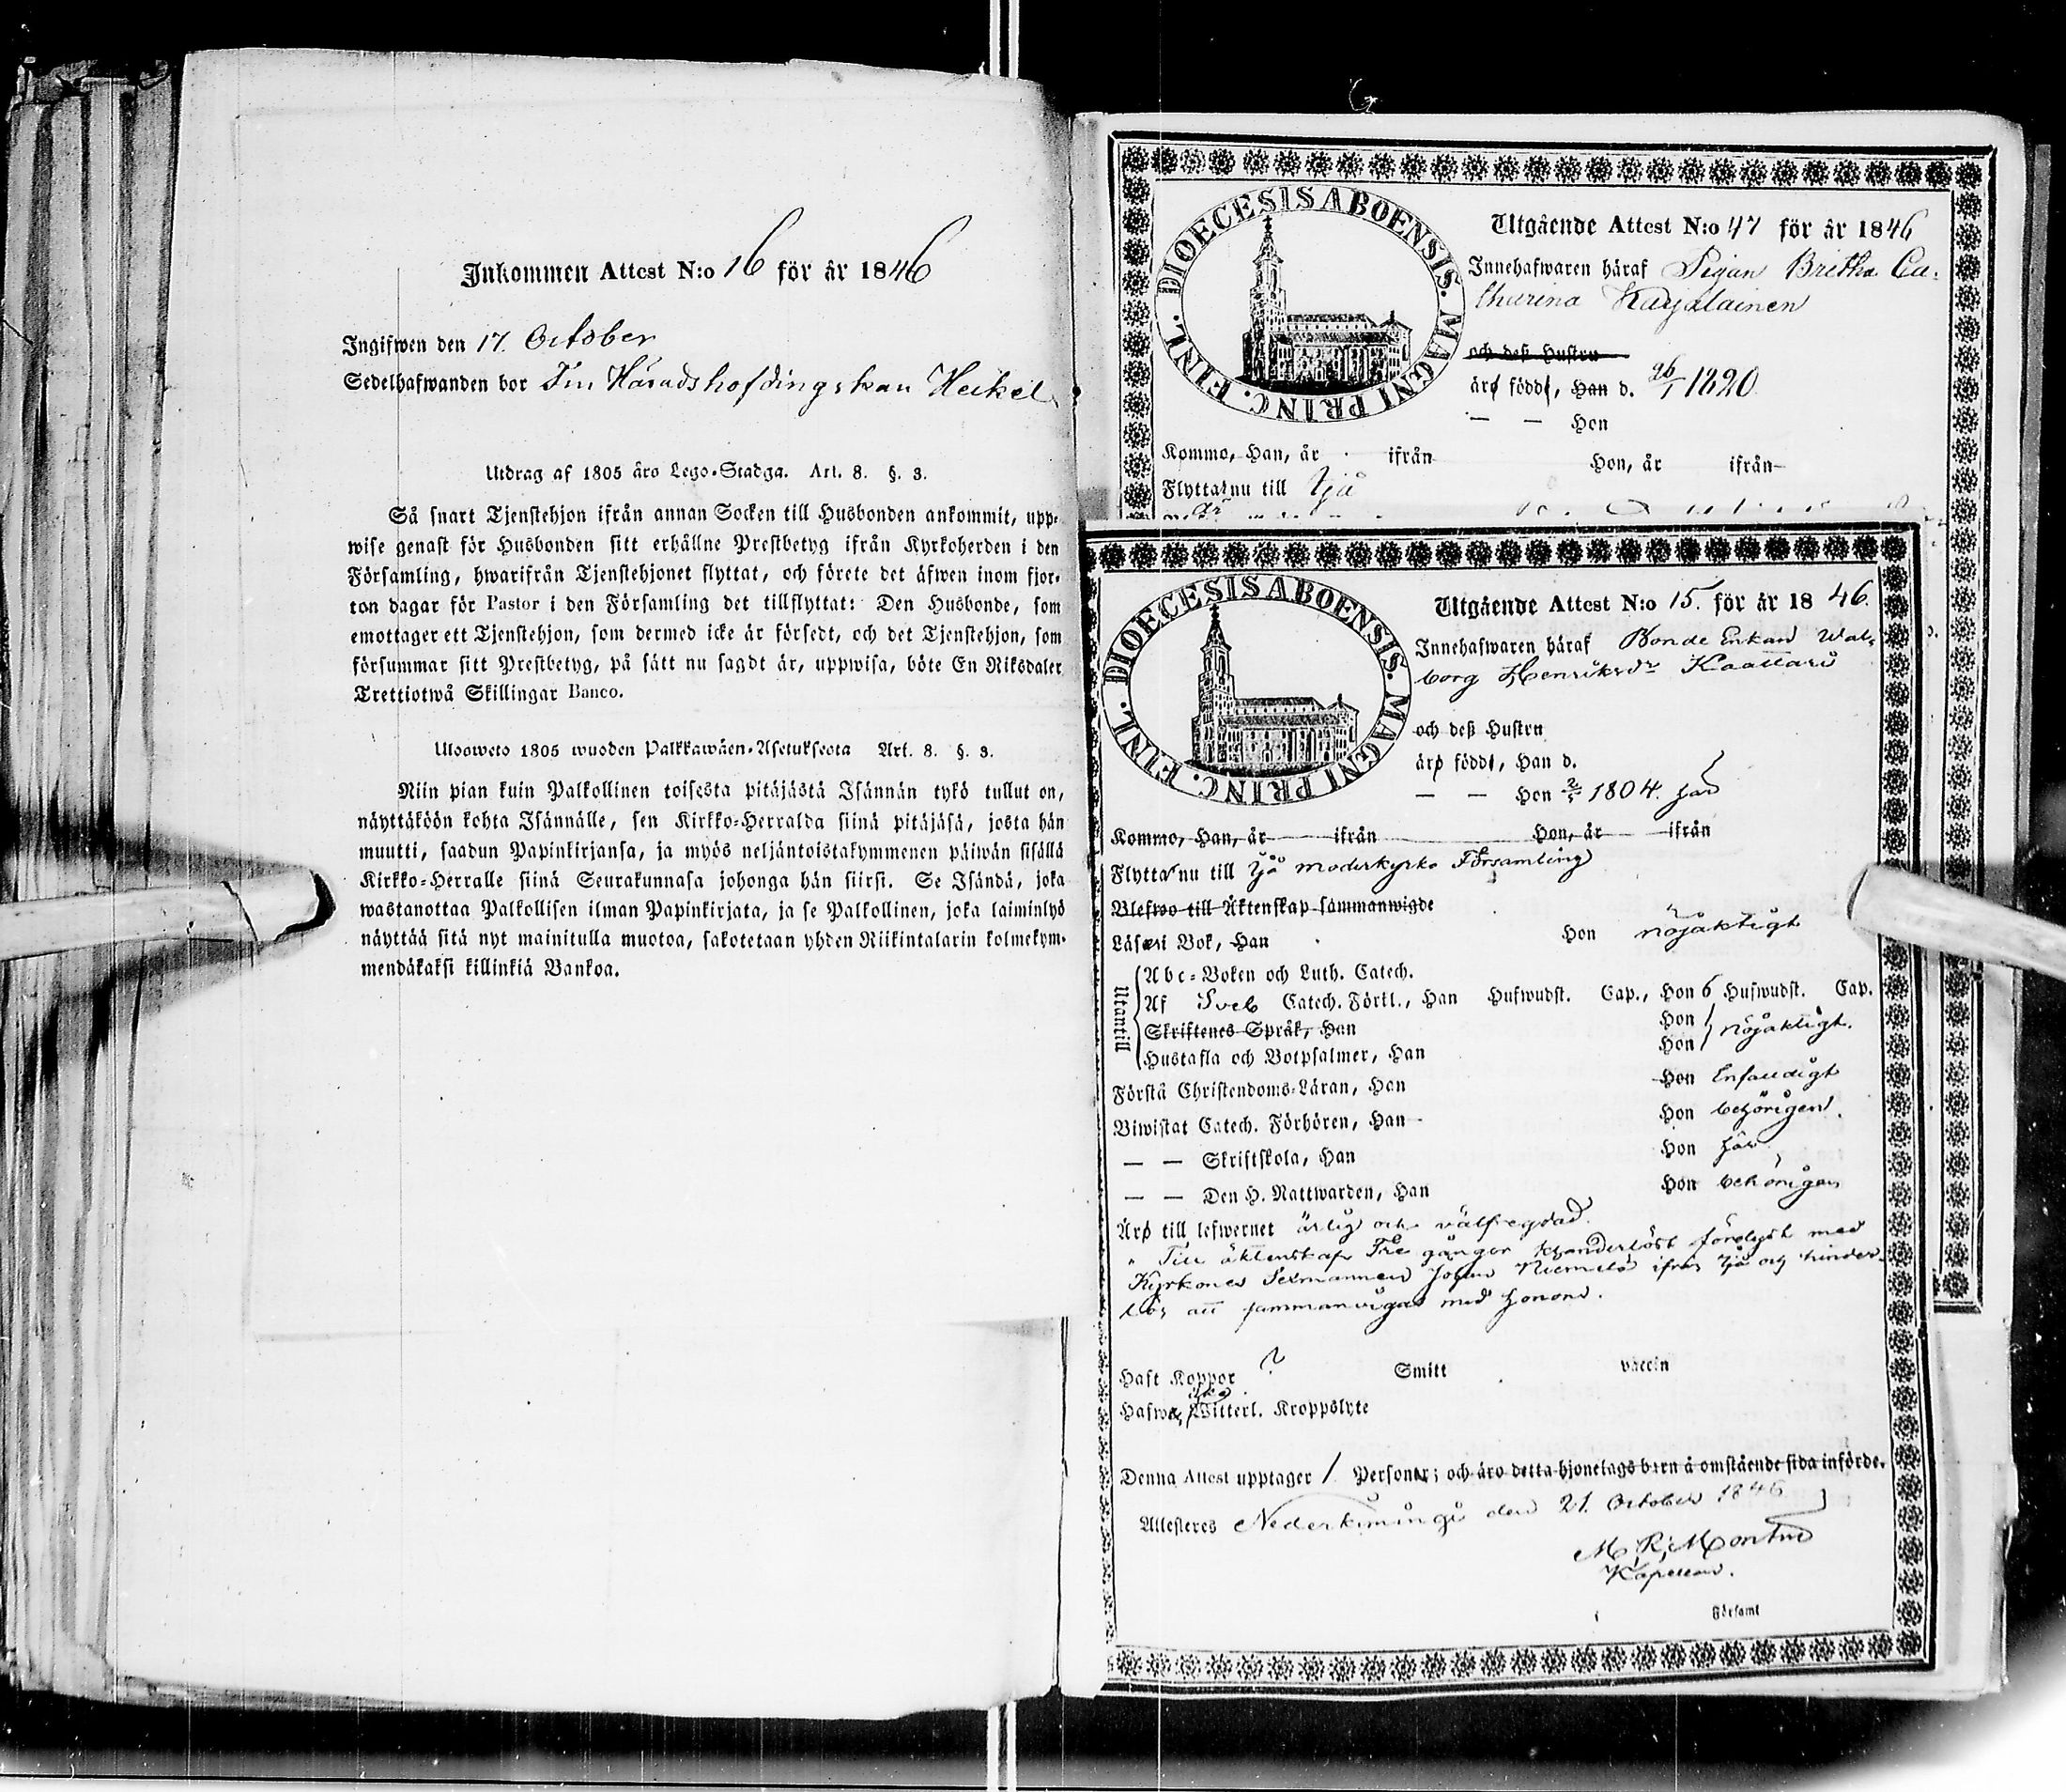 Inkommen Attest N:o 16 för år 1846
Ingifwen den 17. October
Sedelhafwanden bor Häradshöfdingskan Heikel
Utdrag af 1805 års Lego-Stadga. Art. 8. §. 3.
Så snart Tjenstehjon ifrån annan Socken till Husbonden ankommit, upp-
wise genast för Husbonden sitt erhållne Prestbetyg ifrån Kyrkoherden i den
Församling, hwarifrån Tjenstehjonet flyttat, och förete det äfwen inom fjor-
ton dagar för Pastor i den Församling det tillflyttat: Den Husbonde, som
emottager ett Tjenstehjon, som dermed icke är försedt, och det Tjenstehjon, som
försummar sitt Prestbetyg, på sätt nu sagdt är, uppwisa, böte En Riksdaler
Trettiotwå Skillingar Banco.
Ulosweto 1805 wuoden Palkkawäen-Asetuksesta Art. 8. §. 3.
Niin pian kuin Palkollinen toisesta pitäjästä Isännän tykö tullut on,
näyttäköön kohta Isännälle, sen Kirkko-Herralda siinä pitäjäsä, josta hän
muutti, saadun Papinkirjansa, ja myös neljäntoistakymmenen päiwän sisällä
Kirkko-Herralle siinä Seurakunnasa johonga hän siirsi. Se Isändä, joka
wastanottaa Palkollisen ilman Papinkirjata, ja se Palkollinen, joka laiminlyö
näyttää sitä nyt mainitulla muotoa, sakotetaan yhden Riikintalarin kolmekym-
mendäkaksi killinkiä Bankoa.
DIOECESIS ABOENSIS. MAGNI PRINC. FINL.
Utgående Attest N:o 47 för år 1846
Innehafwaren häraf Pigan Britha Ca-
tharina Karjalainen
och deß Hustru
äro född, Han d. 26/1 1820
— — Hon
Kommo, Han, år ifrån Hon, år ifrån
Flytta nu till Ijo
DIOECESIS ABOENSIS. MAGNI PRINC. FINL.
Utgående Attest N:o 15. för år 1846.
Innehafwaren häraf Bonde Enkan Wal-
borg Henriksdr
och deß Hustru
äro född, Han d.
— — Hon 2/5 1804. här
Kommo, Han, år ifrån Hon, år ifrån
Flytta nu till Ijå moderkyrko Församling
Blefwo till Äktenskap sammanwigde
Läser i Bok, Han Hon nöjaktigt
Utantill
Abc-Boken och Luth. Catech.
Af Sveb Catech. Förkl., Han Hufwudst. Cap., Hon 6 Hufwudst. Cap.
Skriftenes Språk, Han Hon
Hustafla och Botpsalmer, Han Hon nöjaktigt.
Förstå Christendoms-Läran, Han Hon Enfaldigt
Biwistat Catech. Förhören, Han Hon behörigen.
— — Skriftskola, Han Hon här
— — Den H. Nattwarden, Han Hon behörigen
Äro till lefwernet ärlig och välfregdad.
Till äktenskap Tre gånger klanderlöst förelyst med
Kyrkones Sexmannen Johan Niemelä ifrån Ijå och hinder-
lös att sammanvigas med honom.
Haft Koppor ? Smitt vaccin
Hafwa Witterl. Kroppslyte
Denna Attest upptager 1 Personer; och äro detta hjonelags barn å omstående sida införde.
Attesteres Nederkiminge den 21. October 1846
M. R. Montin
Kapellan.
Församl